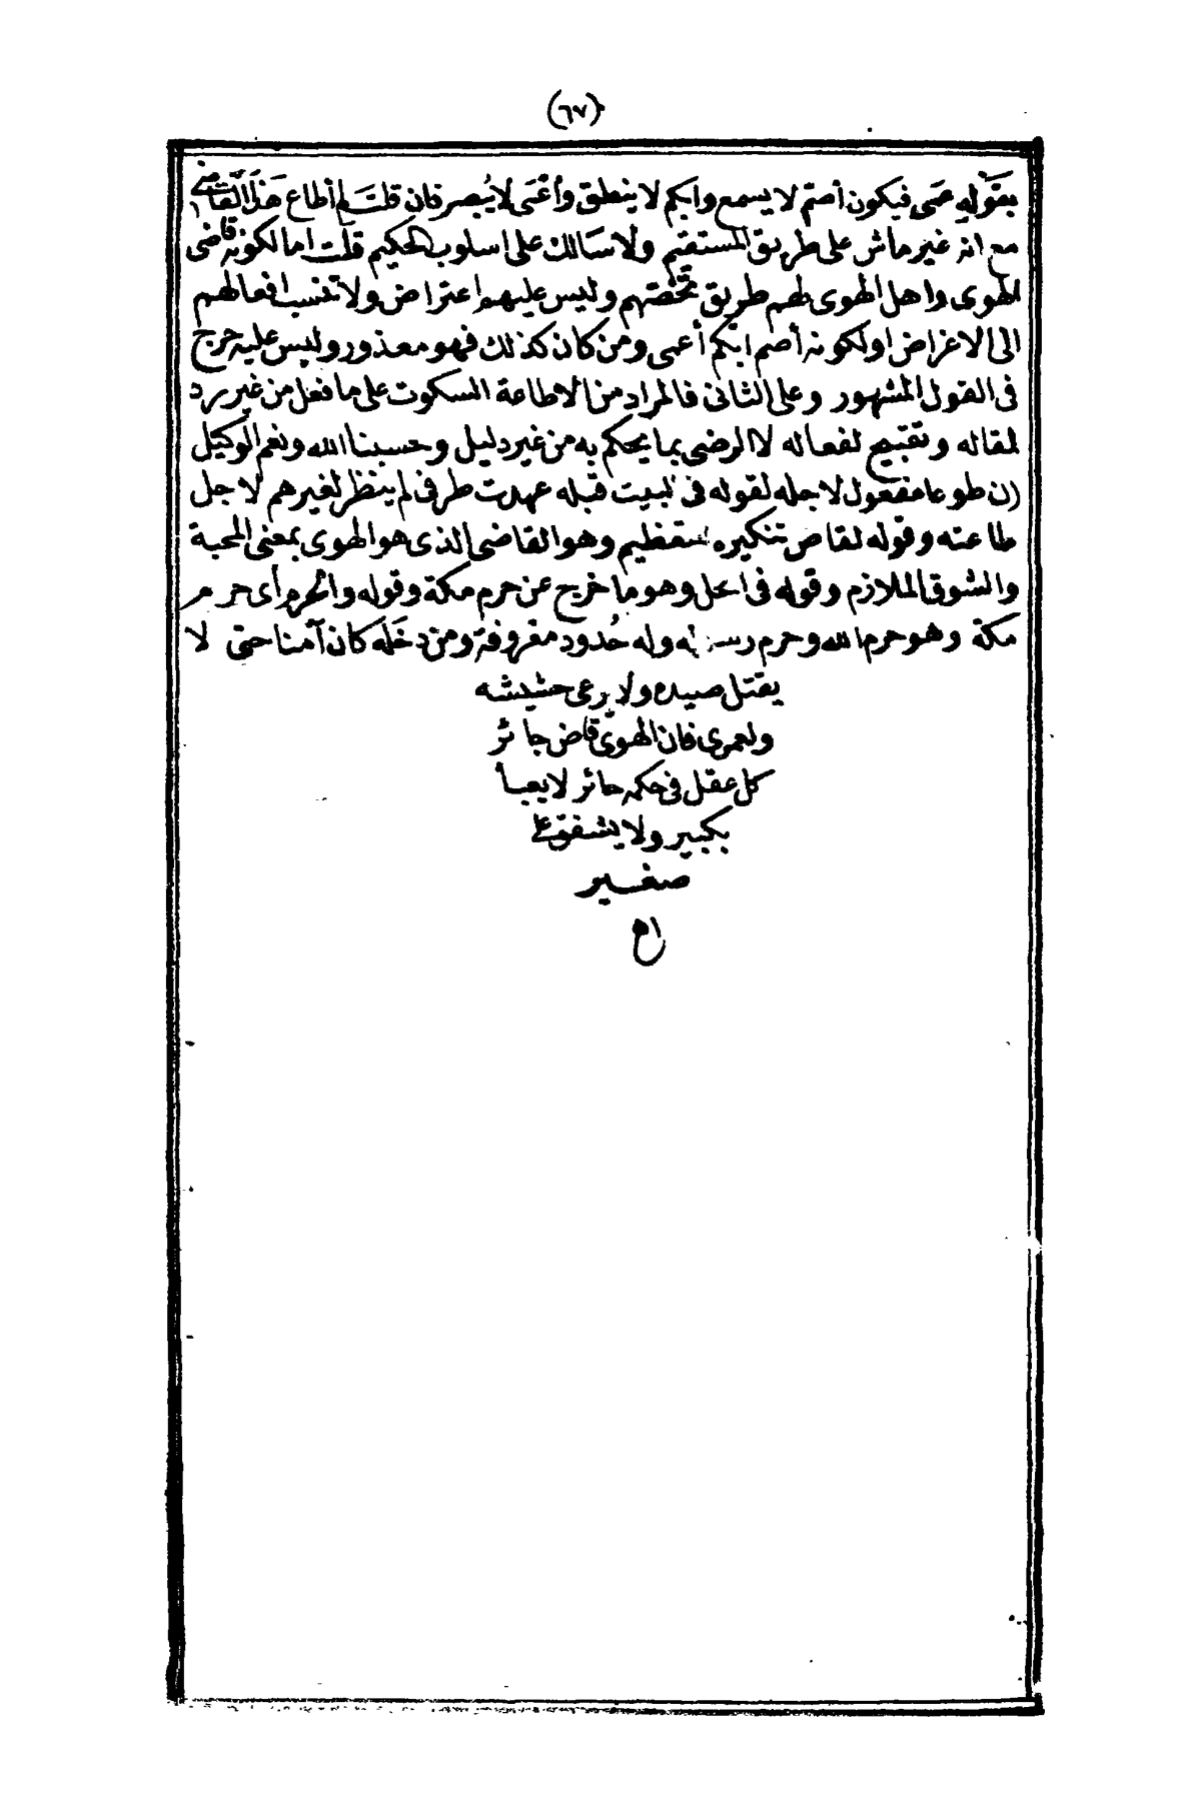 (٦٧)
بقوله عمى فيكون أصم لا يسمع وابكم لا ينطق وأعمى لا يُبصر فان قلت لم أطاع هذا القاضى
مع انه غير ماش على طريق المستقيم ولا سَالك على اسلوب الحكيم قلت اما لكونه قاضى
الهوى واهل الهوى لهم طريق تخصّهم وليس عليهم اعتراض ولا تنسب افعالهم
الى الاغراض او لكونه أصم ابكم أعمى ومن كان كذلك فهو معذور وليس عليه حرج
فى القول المشهور وعلى الثانى فالمراد من الاطاعة السكوت على ما فعل من غير رد
لمقاله وتقبيح لفعاله لا الرضى بما يحكم به من غير دليل وحسبنا الله ونعم الوكيل
ان طوعا مفعول لاجله لقوله فى البيت قبله عهدت طرفى لم ينظر لغيرهم لاجل
طاعته وقوله لقاض تنكيره للتعظيم وهو القاضى الذى هو الهوى بمعنى المحبة
والشوق الملازم وقوله فى الحل وهو ما خرج عن حرم مكة وقوله والحرم أى حرم
مكة وهو حرم الله وحرم رسوله وله حُدود معروفة ومن دخَله كان آمنا حتى لا
يقتل صيده ولا يرعى حشيشه
ولعمرى فان الهوى قاض جائر
كل عقل فى حكمه حائر لا يعبأ
بكبير ولا يشفق على
صغير
اه